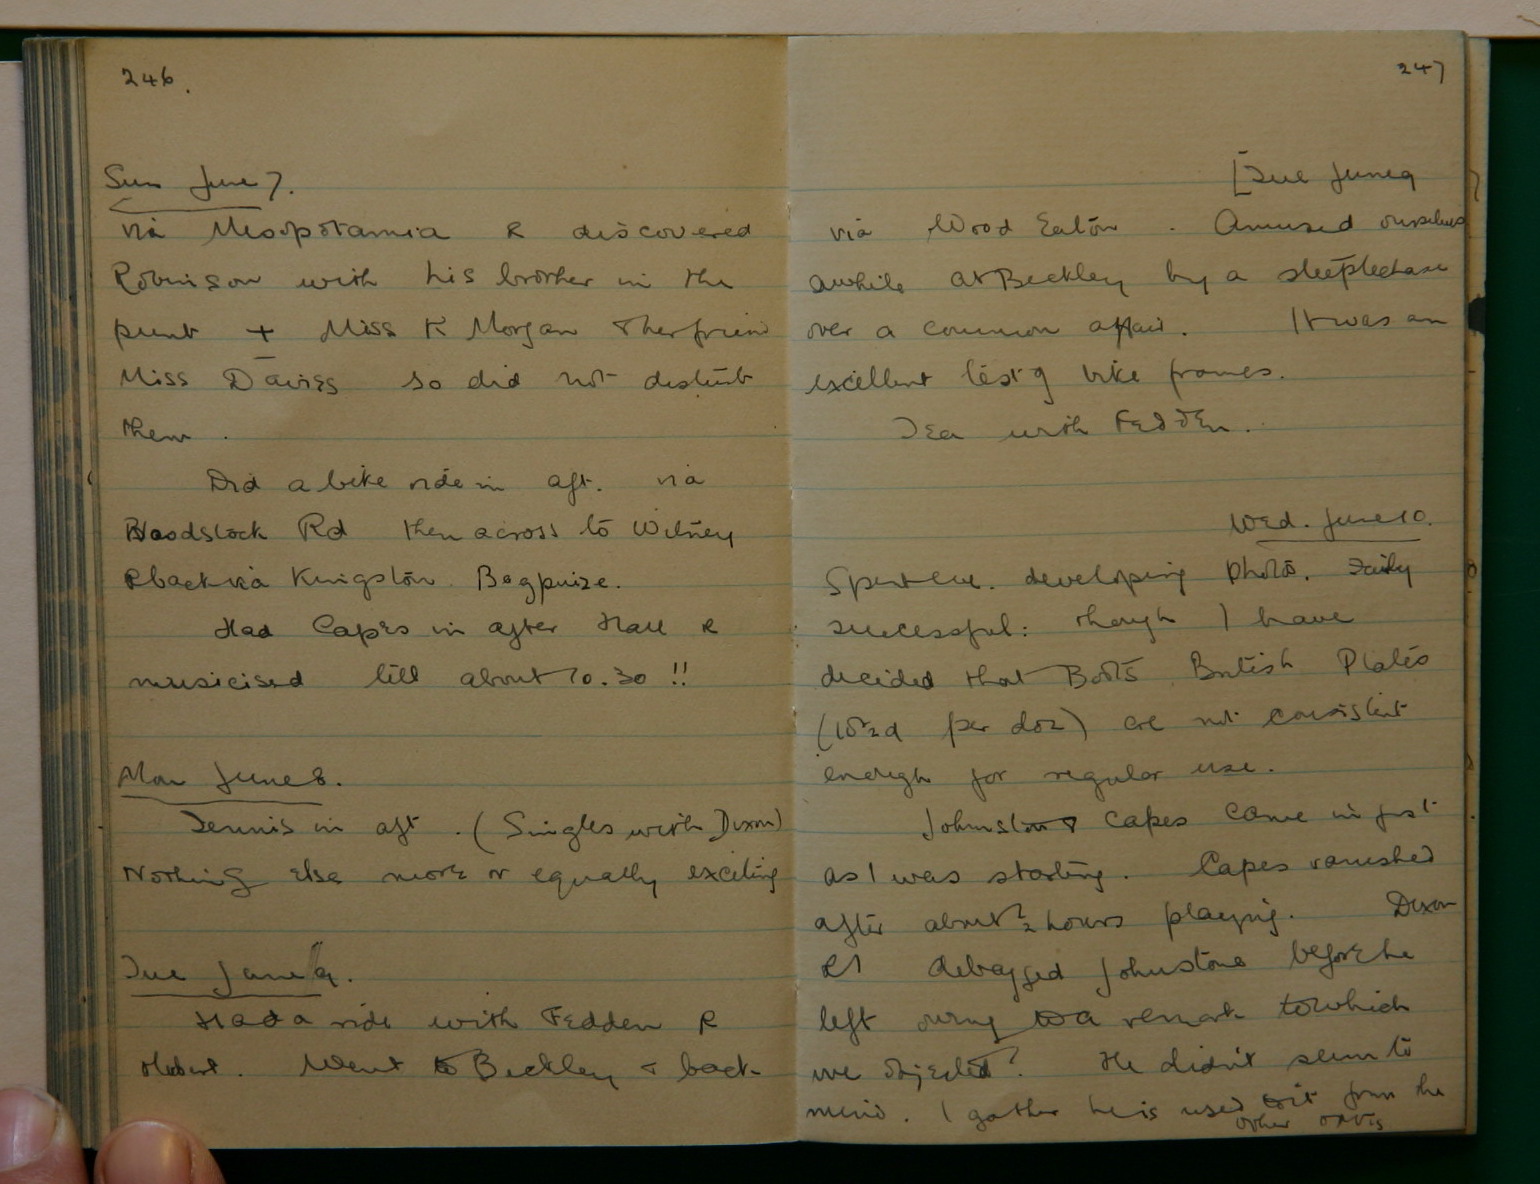 246.
Sun June 7.
via Mesopotamia & discovered
Robinson with his brother in the
punt + Miss K Morgan & her friend
Miss Davies so did not disturb
them.
Did a bike ride in aft. via
Woodstock Rd then across to Witney
& back via Kingston Bagpuize.
Had Capes in after Hall &
musicised till about 10.30 !!
Mon June 8.
Tennis in aft. (Singles with Dixon)
Nothing else more or equally exciting
Tue June 9.
Had a ride with Fedden &
Went to Beckley & back
247
[Tue June 9
via Wood Eaton. Amused ourselves
awhile at Beckley by a steeplechase
over a common affair. It was an
excellent test of bike frames.
Tea with Fedden.
Wed. June 10.
Spent eve. developing photos. Fairly
successful: though I have
decided that Boots British Plates
(10½d per doz) are not consistent
enough for regular use.
Johnstone & Capes came in just
as I was starting. Capes vanished
after about ½ hours playing. Dixon
& I debagged Johnstone before he
left owing to a remark to which
we objected. He didn't seem to
mind. I gather he is used to it from the
other